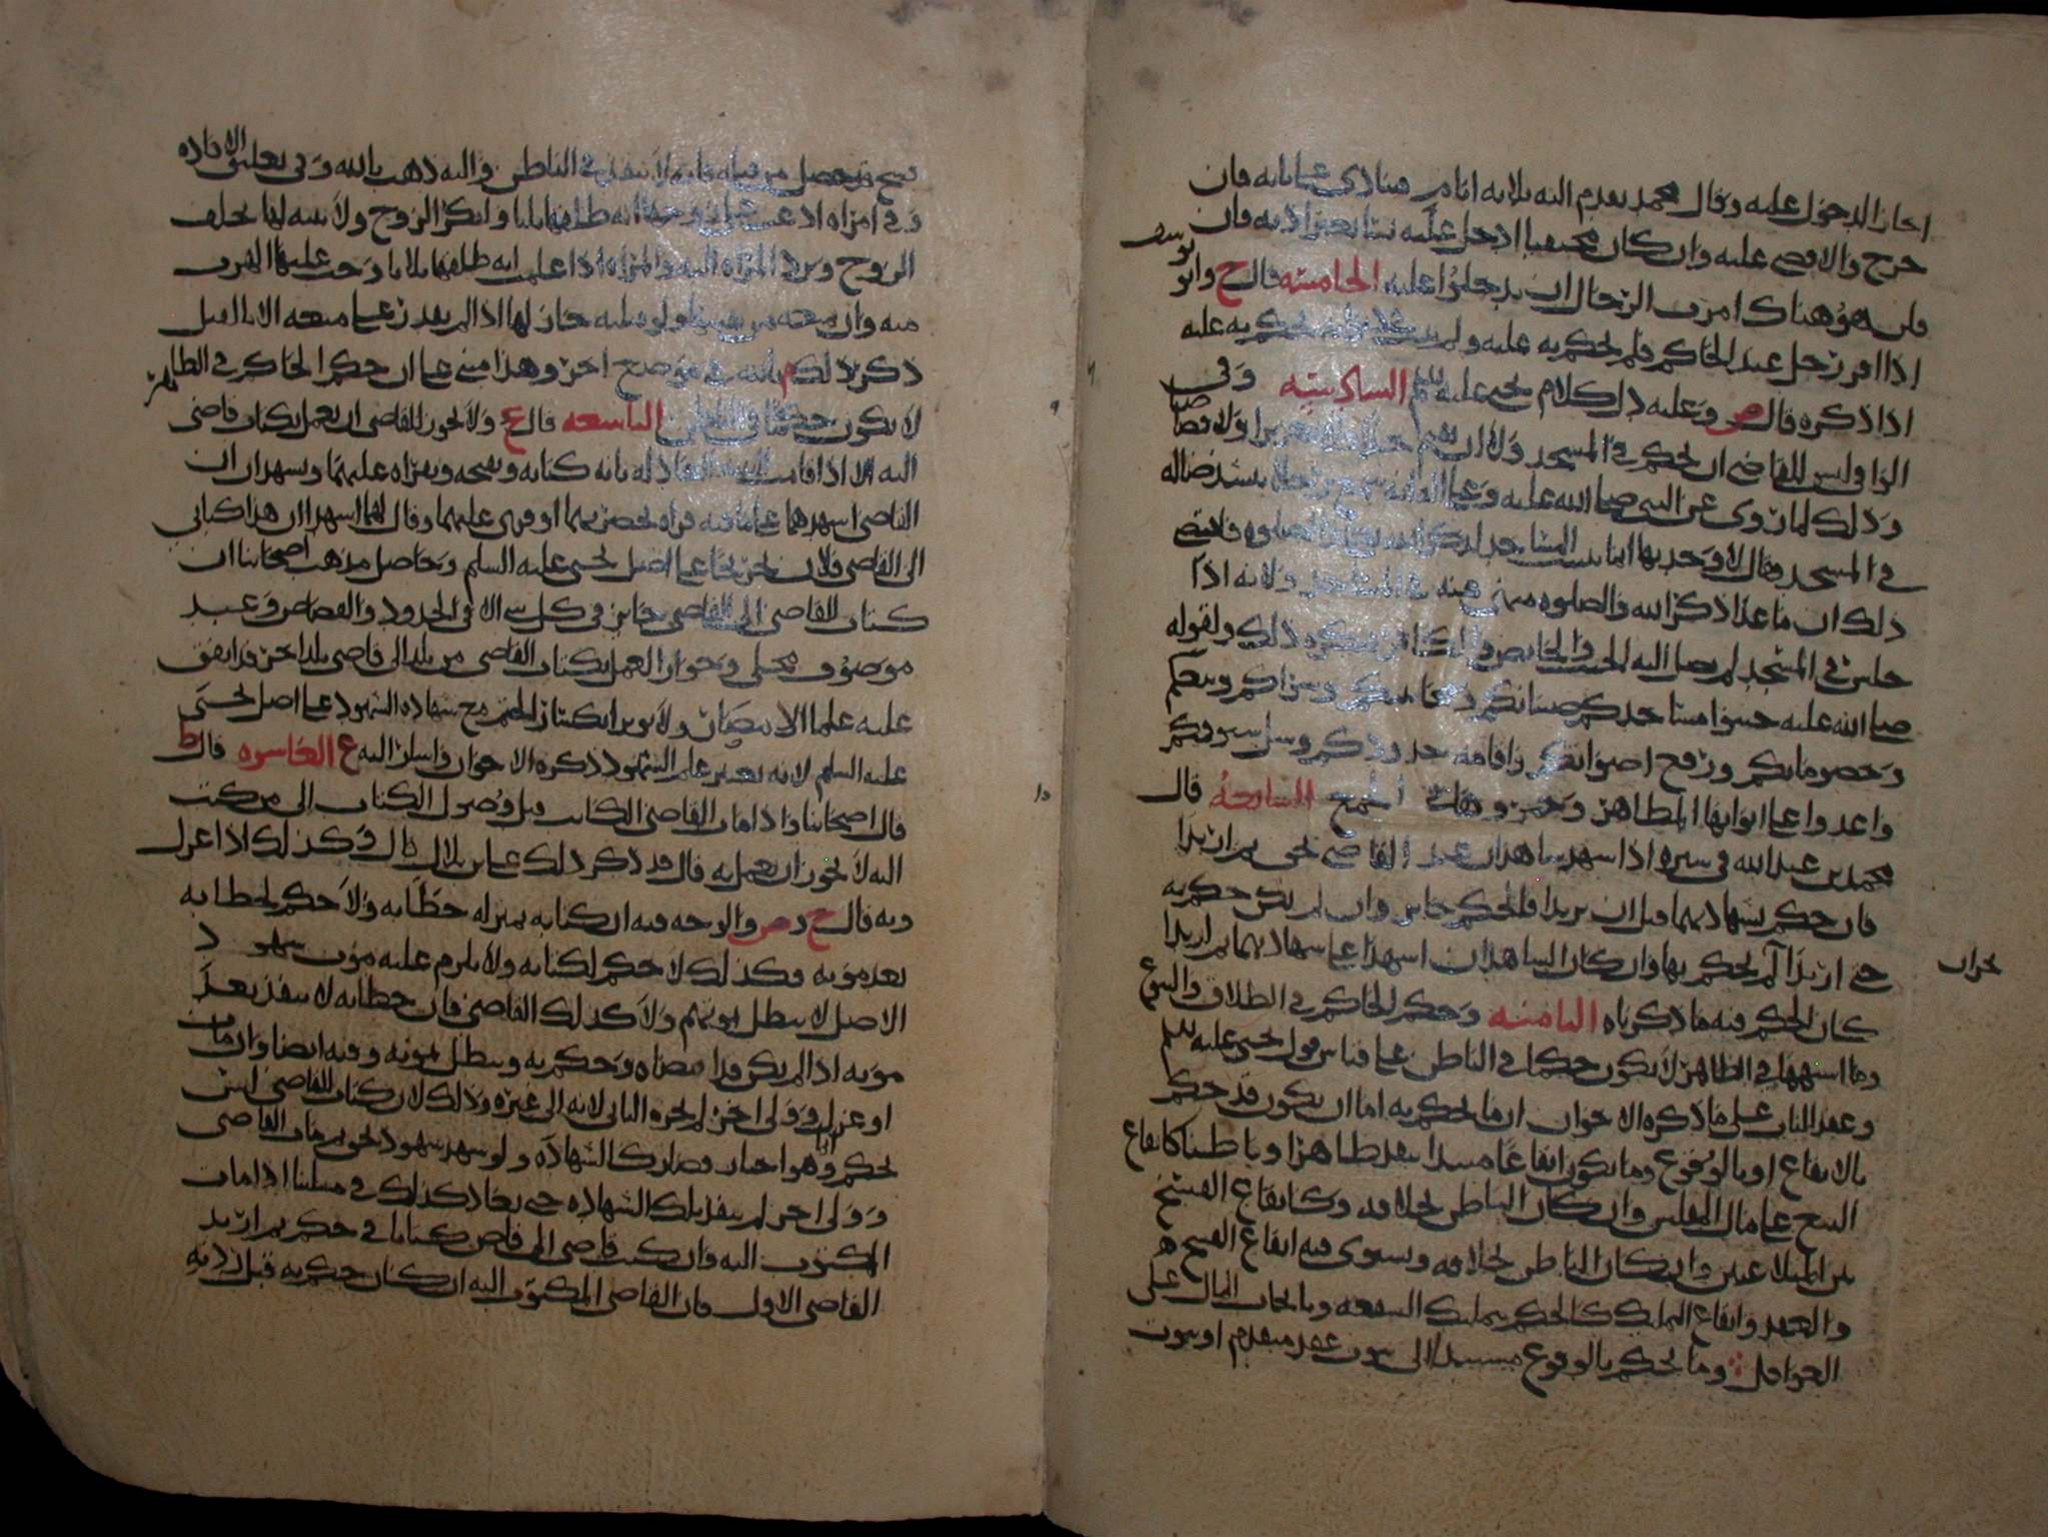 اجاز الدخول عليه وقال محمد يقدم اليه ثلاثة ايام منادى على بابه فان
خرج والا قضى عليه وان كان مختفيا ادخل عليه بيتا بغير اذنه فان
هناك امرت الرجال ان يدخلوا عليه الخامسة قال ح وابو يوسف
اذا اقر رجل عند الحاكم فلم يحكم به عليه ولم يحكم به عليه
اذا ذكره قال ص وعليه دل كلام يحيى عليه السلم السادسة وفي
الوافي وليس للقاضي ان يحكم في المسجد ولا ان يقيم حدا ولا تعزيرا ولا قصاصا
وذلك لما روى عن النبي صلى الله عليه وعلى اله انه سمع رجلا ينشد ضاله
في المسجد فقال لا وجدتها انما بنيت المساجد لذكر الله والصلوة فاقتضى
ذلك ان ما عدا ذكر الله والصلوه منهي عنه في المسجد ولانه اذا
جلس في المسجد لم يصل اليه الجنب والحايض والكافر فيكره ذلك ولقوله
صلى الله عليه جنبوا مساجدكم صبيانكم ومجانينكم وشراكم وبيعكم
وخصوماتكم ورفع اصواتكم واقامة حدودكم وسل سيوفكم
واعدوا على ابوابها المطاهر وجمروها في الجمع السابعة قال
محمد بن عبد الله في سيره اذا شهد شاهدان عند القاضي بحق ثم ارتدا
فان حكم بشهادتهما قبل ان يرتدا فالحكم جايز وان لم يكن حكم به
حتى ارتدا لم يحكم بها وان كان الشاهدان اشهدا على شهادتهما ثم ارتدا
كان الحكم فيه ما ذكرناه الثامنة وحكم الحاكم في الطلاق والبيوع
وما اشبهها في الظاهر لا يكون حكما في الباطن على قياس قول يحيى عليه السلم
وعقد الباب على ما ذكره الاخوان ان ما يحكم به اما ان يكون قد حكم
بالايقاع او بالوقوع وما يكون ايقاعا مبتدا ينفذ ظاهرا وباطنا كايقاع
البيع على مال المفلس وان كان الباطن بخلافه وكايقاع الفسخ
بين المتلاعنين وان كان الباطن بخلافه ويستوي فيه ايقاع الفسخ
والعقد وايقاع التمليك كالحكم بتمليك الشفعه وبايجاب المال على
العواقل وما يحكم بالوقوع مستندا الى ثبوت عقد متقدم او ثبوت
فسخ قد حصل من قبله فانه لا ينفذ في الباطن واليه ذهب بالله وفي تعليق الافاده
وفي امراه ادعت على زوجها انه طلقها ثلاثا وانكر الزوج ولا بينه لها يحلف
الزوج وترد المراه اليه والمراه اذا علمت انه طلقها ثلاثا وجب عليها الهرب
منه وان منعته من نفسها ولو بقتله جاز لها اذا لم يقدر على منعه الا بالقتل
ذكر ذلك م بالله في موضع اخر وهذا مبني على ان حكم الحاكم في الظاهر
لا يكون حكما في الباطن التاسعه قال ع ولا يجوز للقاضي ان يعمل بكتاب قاضي
اليه الا اذا قامت البينه العادله بانه كتابه وختمه وبقراه عليهما ويشهدان ان
القاضي اشهدهما على ما فيه قراه بحضرتهما او قرى عليهما وقال لهما اشهدا ان هذا كتابي
الى القاضي فلان تخريجا على اصل يحيى عليه السلم وحاصل مذهب اصحابنا ان
كتاب القاضي الى القاضي جايز في كل شي الا في الحدود والقصاص وعبد
موصوف محلى وجواز العمل بكتاب القاضي من بلد الى قاضي بلد اخر قد اتفق
عليه علما الامصار ولا يوثر انكسار الختم مع شهاده الشهود على اصل يحيى
عليه السلم لانه يعتبر علم الشهود ذكره الاخوان واشار اليه ع العاشره قال ط
قال اصحابنا واذا مات القاضي الكاتب قبل وصول الكتاب الى من كتب
اليه لا يجوز ان يعمل به قال قد ذكر ذلك علي بن بلال قال وكذلك اذا عزل
وبه قال ح وص والوجه فيه ان كتابه بمنزله خطابه ولا حكم لخطابه
بعد موته وكذلك لا حكم لكتابه ولا يلزم عليه موت شهود
الاصل لا يبطل بموتهم ولا كذلك القاضي فان خطابه لا ينفذ بعد
موته اذا لم يكن قد امضاه وحكم به ويبطل بموته وفيه ايضا وان مات
او عزل وولي اخر لم يجزه الثاني لانه الى غيره وذلك لان كتاب القاضي ليس
بحكم وانما هو اخبار فصار كالشهادة ولو شهد شهود بحق ثم مات القاضي
وولى اخر لم ينفذ بتلك الشهاده حتى يعاد كذلك في مسلتنا اذا مات
المكتوب اليه وان كتب قاضي الى قاض كتابا في حكم ثم ارتد
القاضي الاول فان القاضي المكتوب اليه ان كان حكم به قبل ردته